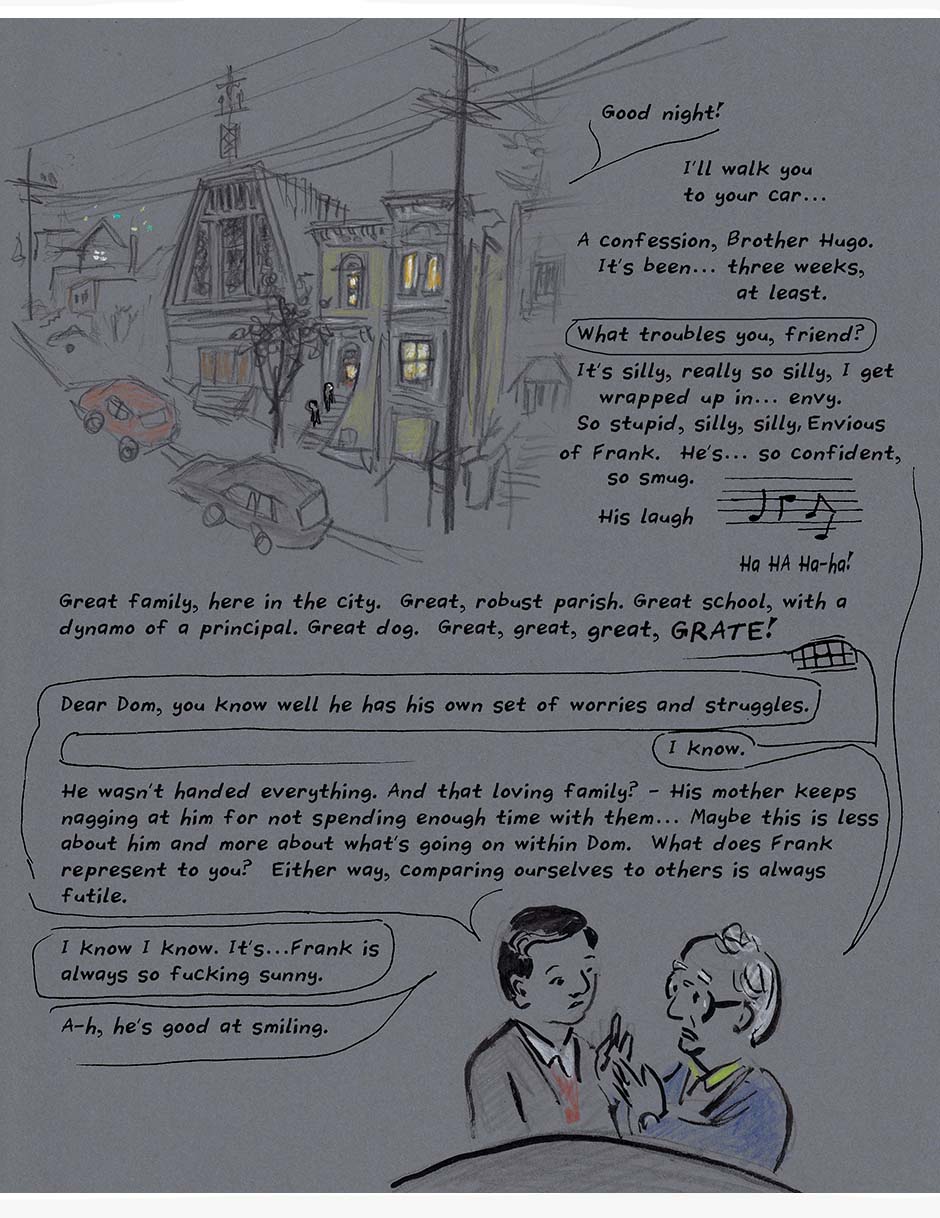 Good night!
I'll walk you
to your car...
A confession, Brother Hugo.
It's been... three weeks,
at least.
What troubles you, friend?
It's silly, really so silly, I get
wrapped up in... envy.
So stupid, silly, silly, Envious
of Frank. He's... so confident,
so smug.
His laugh
Ha HA Ha-ha!
Great family, here in the city. Great, robust parish. Great school, with a
dynamo of a principal. Great dog. Great, great, great, GRATE!
Dear Dom, you know well he has his own set of worries and struggles.
I know.
He wasn't handed everything. And that loving family? - His mother keeps
nagging at him for not spending enough time with them... Maybe this is less
about him and more about what's going on within Dom. What does Frank
represent to you? Either way, comparing ourselves to others is always
futile.
I know I know. It's...Frank is
always so fucking sunny.
A-h, he's good at smiling.